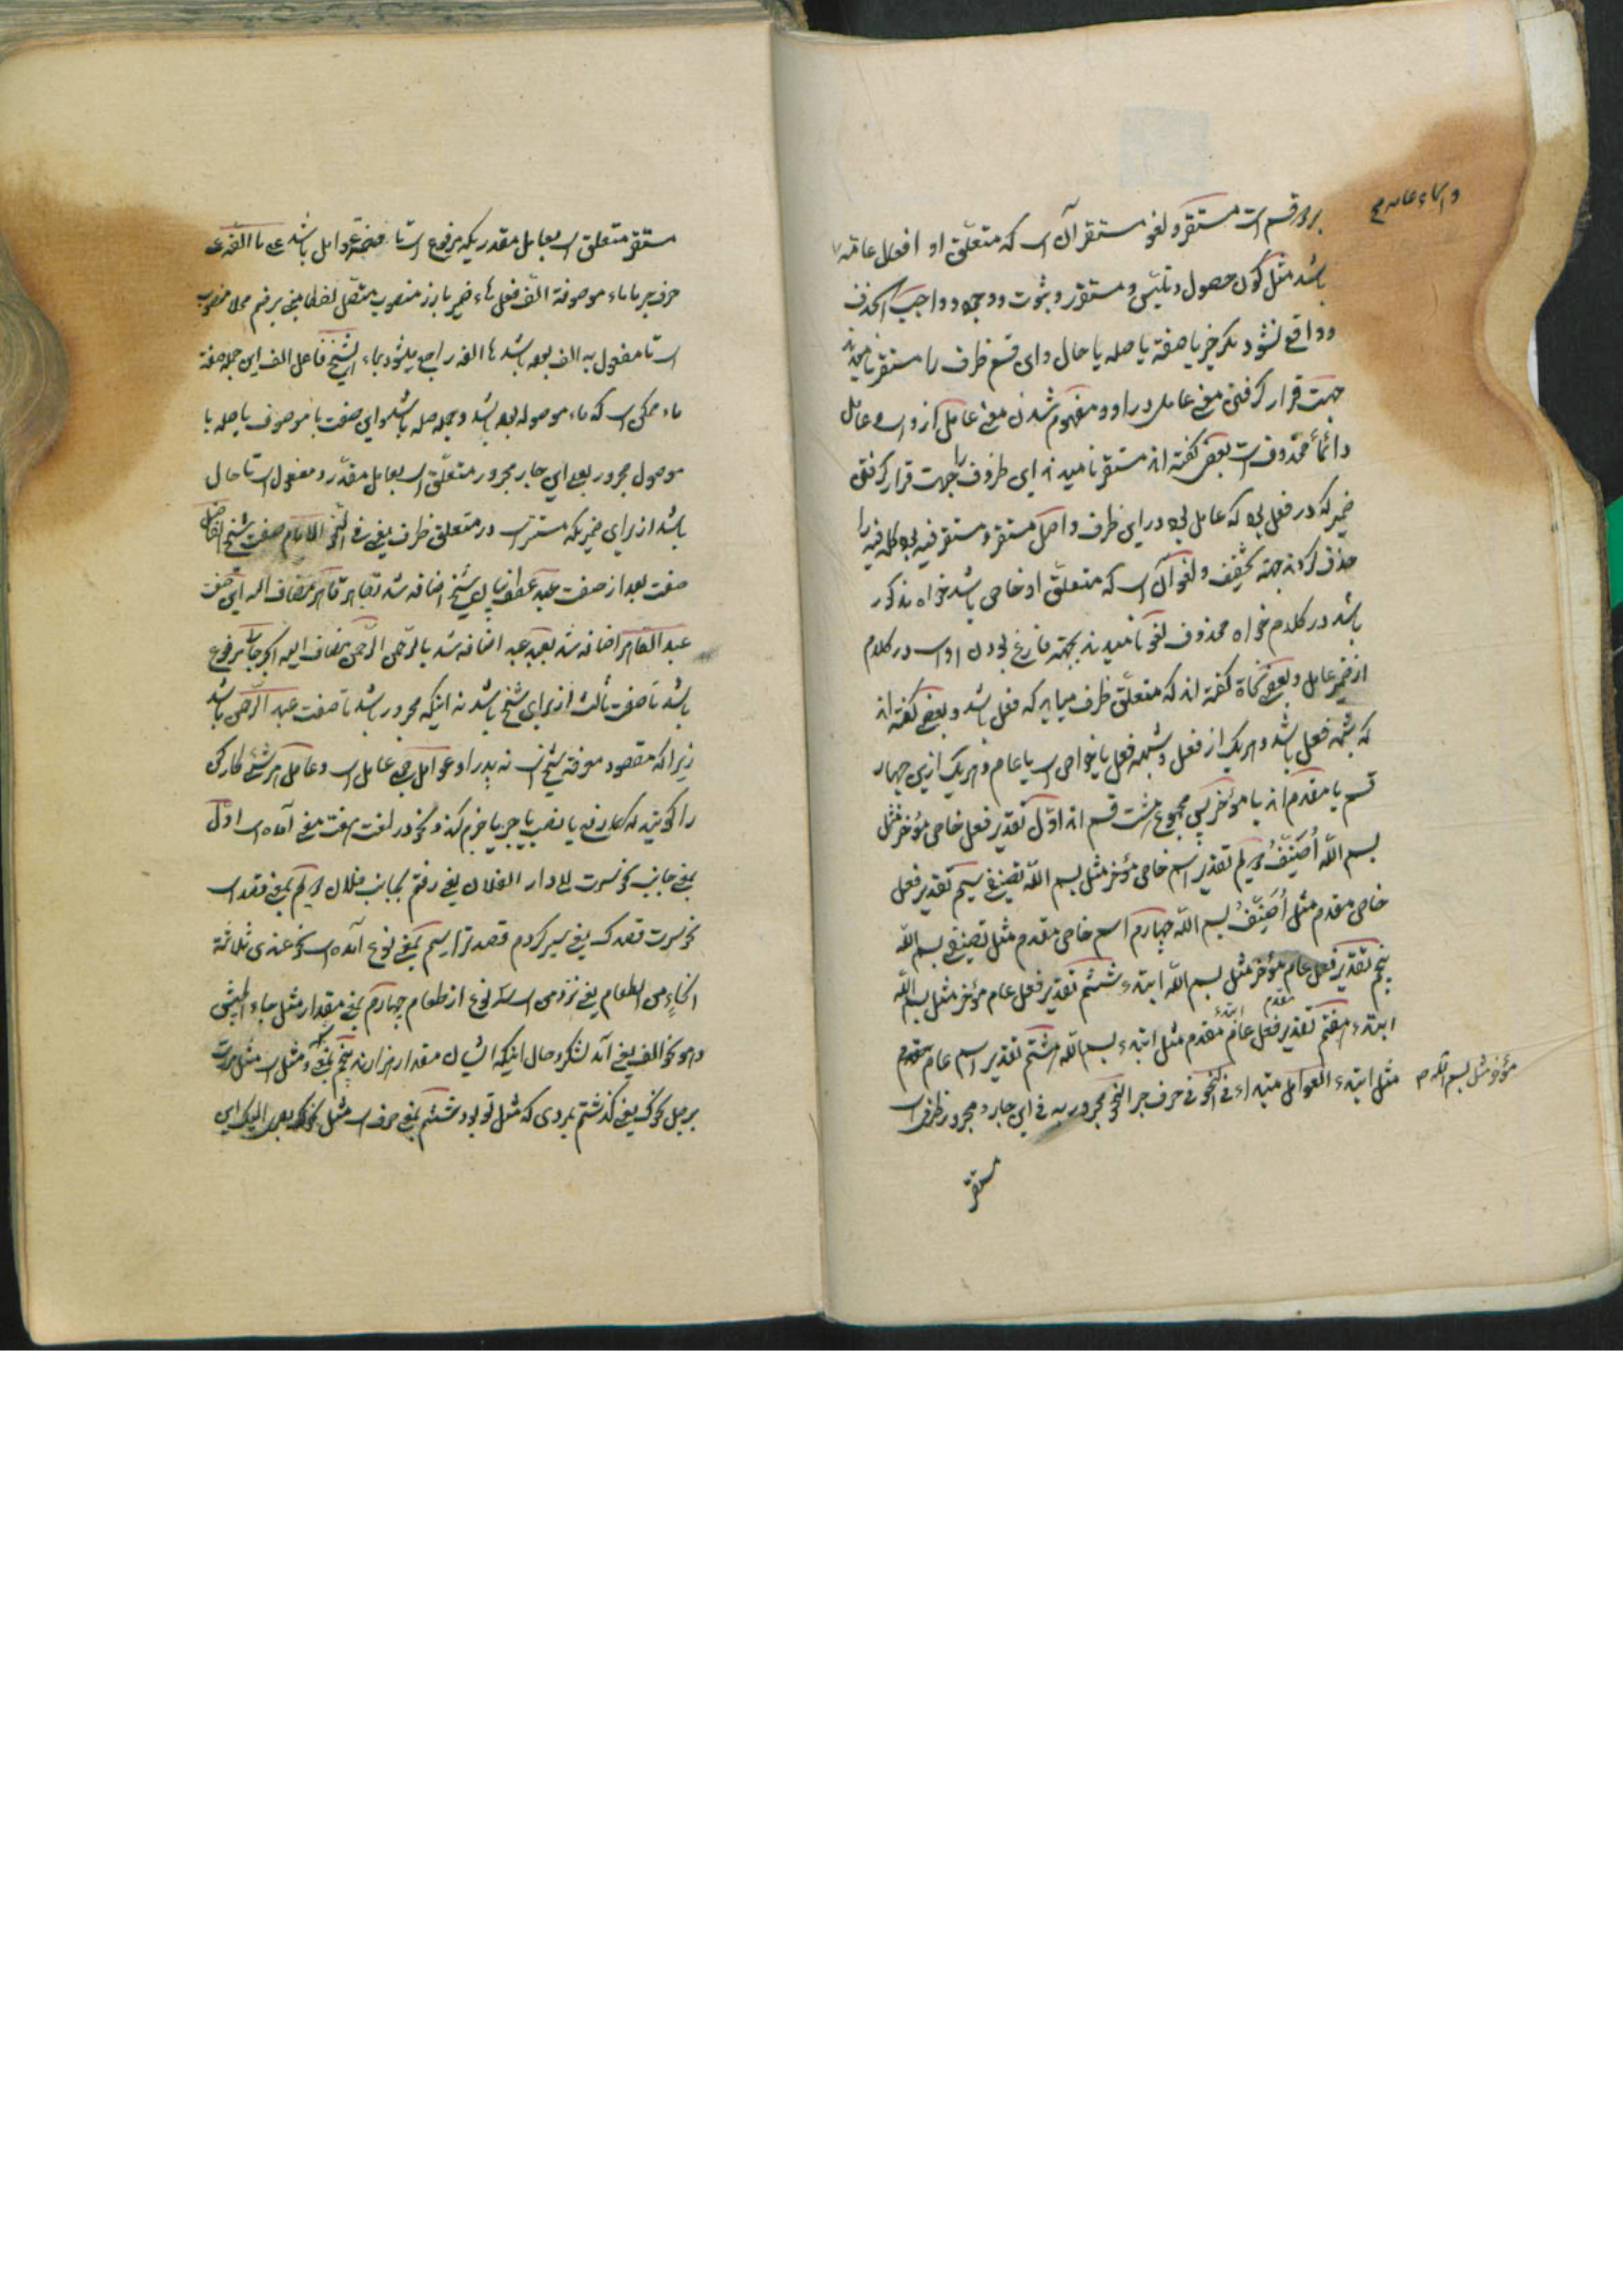 بر دو قسم است مستقر و لغو مستقر آن است که متعلّق او افعال عامّه
باشد مثل کون حصول و تلبّس و مستقر و ثبوت و وجود و واجب الحذف
و واقع نشود مگر خبر یا صفة یا صله یا حال و این قسم ظرف را مستقر نامیدند
جهت قرار گرفتن معنی عامل در او و مفهوم شدن معنی عامل از و است و عامل
دائماً محذوف است بعضی گفته اند مستقر نامیدند این ظروف را جهت قرار گرفتن
ضمیر که در فعل بود که عامل بود در این ظرف و اصل مستقر و مستقر فیه بود کلمه فیه را
حذف کردند جهته تخفیف و لغو آن است که متعلّق او خاص باشد خواه مذکور
باشد در کلام خواه محذوف لغو نامیدند بجهته فارغ بودن او است در کلام
از ضمیر عامل و بعضی نحاة گفته اند که متعلّق ظرف میباید که فعل باشد و بعضی گفته اند
که شبه فعل باشد و هر یک از فعل و شبه فعل یا خاص است یا عام و هر یک ازین چهار
قسم یا مقدم اند یا مؤخر پس مجموع هشت قسم اند اوّل تقدیر فعل خاص مؤخر مثل
بسم اللّه اُصَنِّفُ دویم تقدیر اسم خاص مؤخر مثل بسم اللّه تصنیفی سیم تقدیر فعل
خاص مقدم مثل اُصَنِّفُ بسم اللّه چهارم اسم خاص مقدم مثل تصنیفی بسم اللّه
پنجم تقدیر فعل عام مؤخر مثل بسم اللّه ابتدء ششم تقدیر فعل عام مؤخر مثل بسم اللّه
ابتدء هفتم تقدیر فعل عام مقدم مثل ابتدء بسم اللّه هشتم تقدیر اسم عام مقدم
مثل ابتدء العوامل مبتداء فی النحو فی حرف جر النحو مجرور به فی این جار و مجرور ظرف است
مؤخر مثل بسم اللّه م
مستقر
مستقر متعلق است بعامل مقدر یکه مرفوع است تا صفة عوامل باشد علی ما الفه علی
حرف جر ما ماء موصوفة الف فعل هاء ضمیر بارز منصوب متصل لفظا مبنی بر ضم محلا منصوب
است تا مفعول به الف بوده باشد ها الفه راجع میشود بماء الشیخ فاعل الف این جمله صفة
ماء ممکن است که ماء موصوله بوده باشد و جمله صله باشد و این صفت با موصوف یا صله با
موصول مجرور بعلی این جار مجرور متعلّق است بعامل مقدّر و مفعول است تا حال
باشد از برای ضمیریکه مستتر است در متعلق ظرف یعنی فی النحو الامام صفت شیخ الفاضل
صفت بعد از صفت عبد عطف بیان شیخ اضافه شد بقاهر قاهر مضاف الیه این صفت
عبد القاهر اضافه شد بعبد عبد اضافه شد بالرّحمن الرّحمن مضاف الیه الجرجانی مرفوع
باشد تا صفت ثالث از برای شیخ باشد نه اینکه مجرور باشد تا صفت عبد الرّحمن باشد
زیرا که مقصود معرفة شیخ است نه پدر او عوامل جمع عامل است و عامل هر شئ کارکن
را گویند که کلمه را رفع یا نصب یا جر یا جزم کند و نحو در لغت هفت معنی آمده است اوّل
بمعنی جانب نحو سرت الی دار الفلان یعنی رفتم بجانب فلان دویم بمعنی قصد است
نحو سرت قصدک یعنی سیر کردم قصد ترا سیم بمعنی نوع آمده است نحو عندی ثلاثة
انحاءٍ من الطعام یعنی نزد من است سه نوع از طعام چهارم بمعنی مقدار مثل جاء الجیش
و هو نحو الف یعنی آمد لشکر و حال اینکه ایشان مقدار هزارند پنجم بمعنی مثل است مثل مررت
برجل نحوک یعنی گذشتم بمردی که مثل تو بود ششم بمعنی صرف است مثل